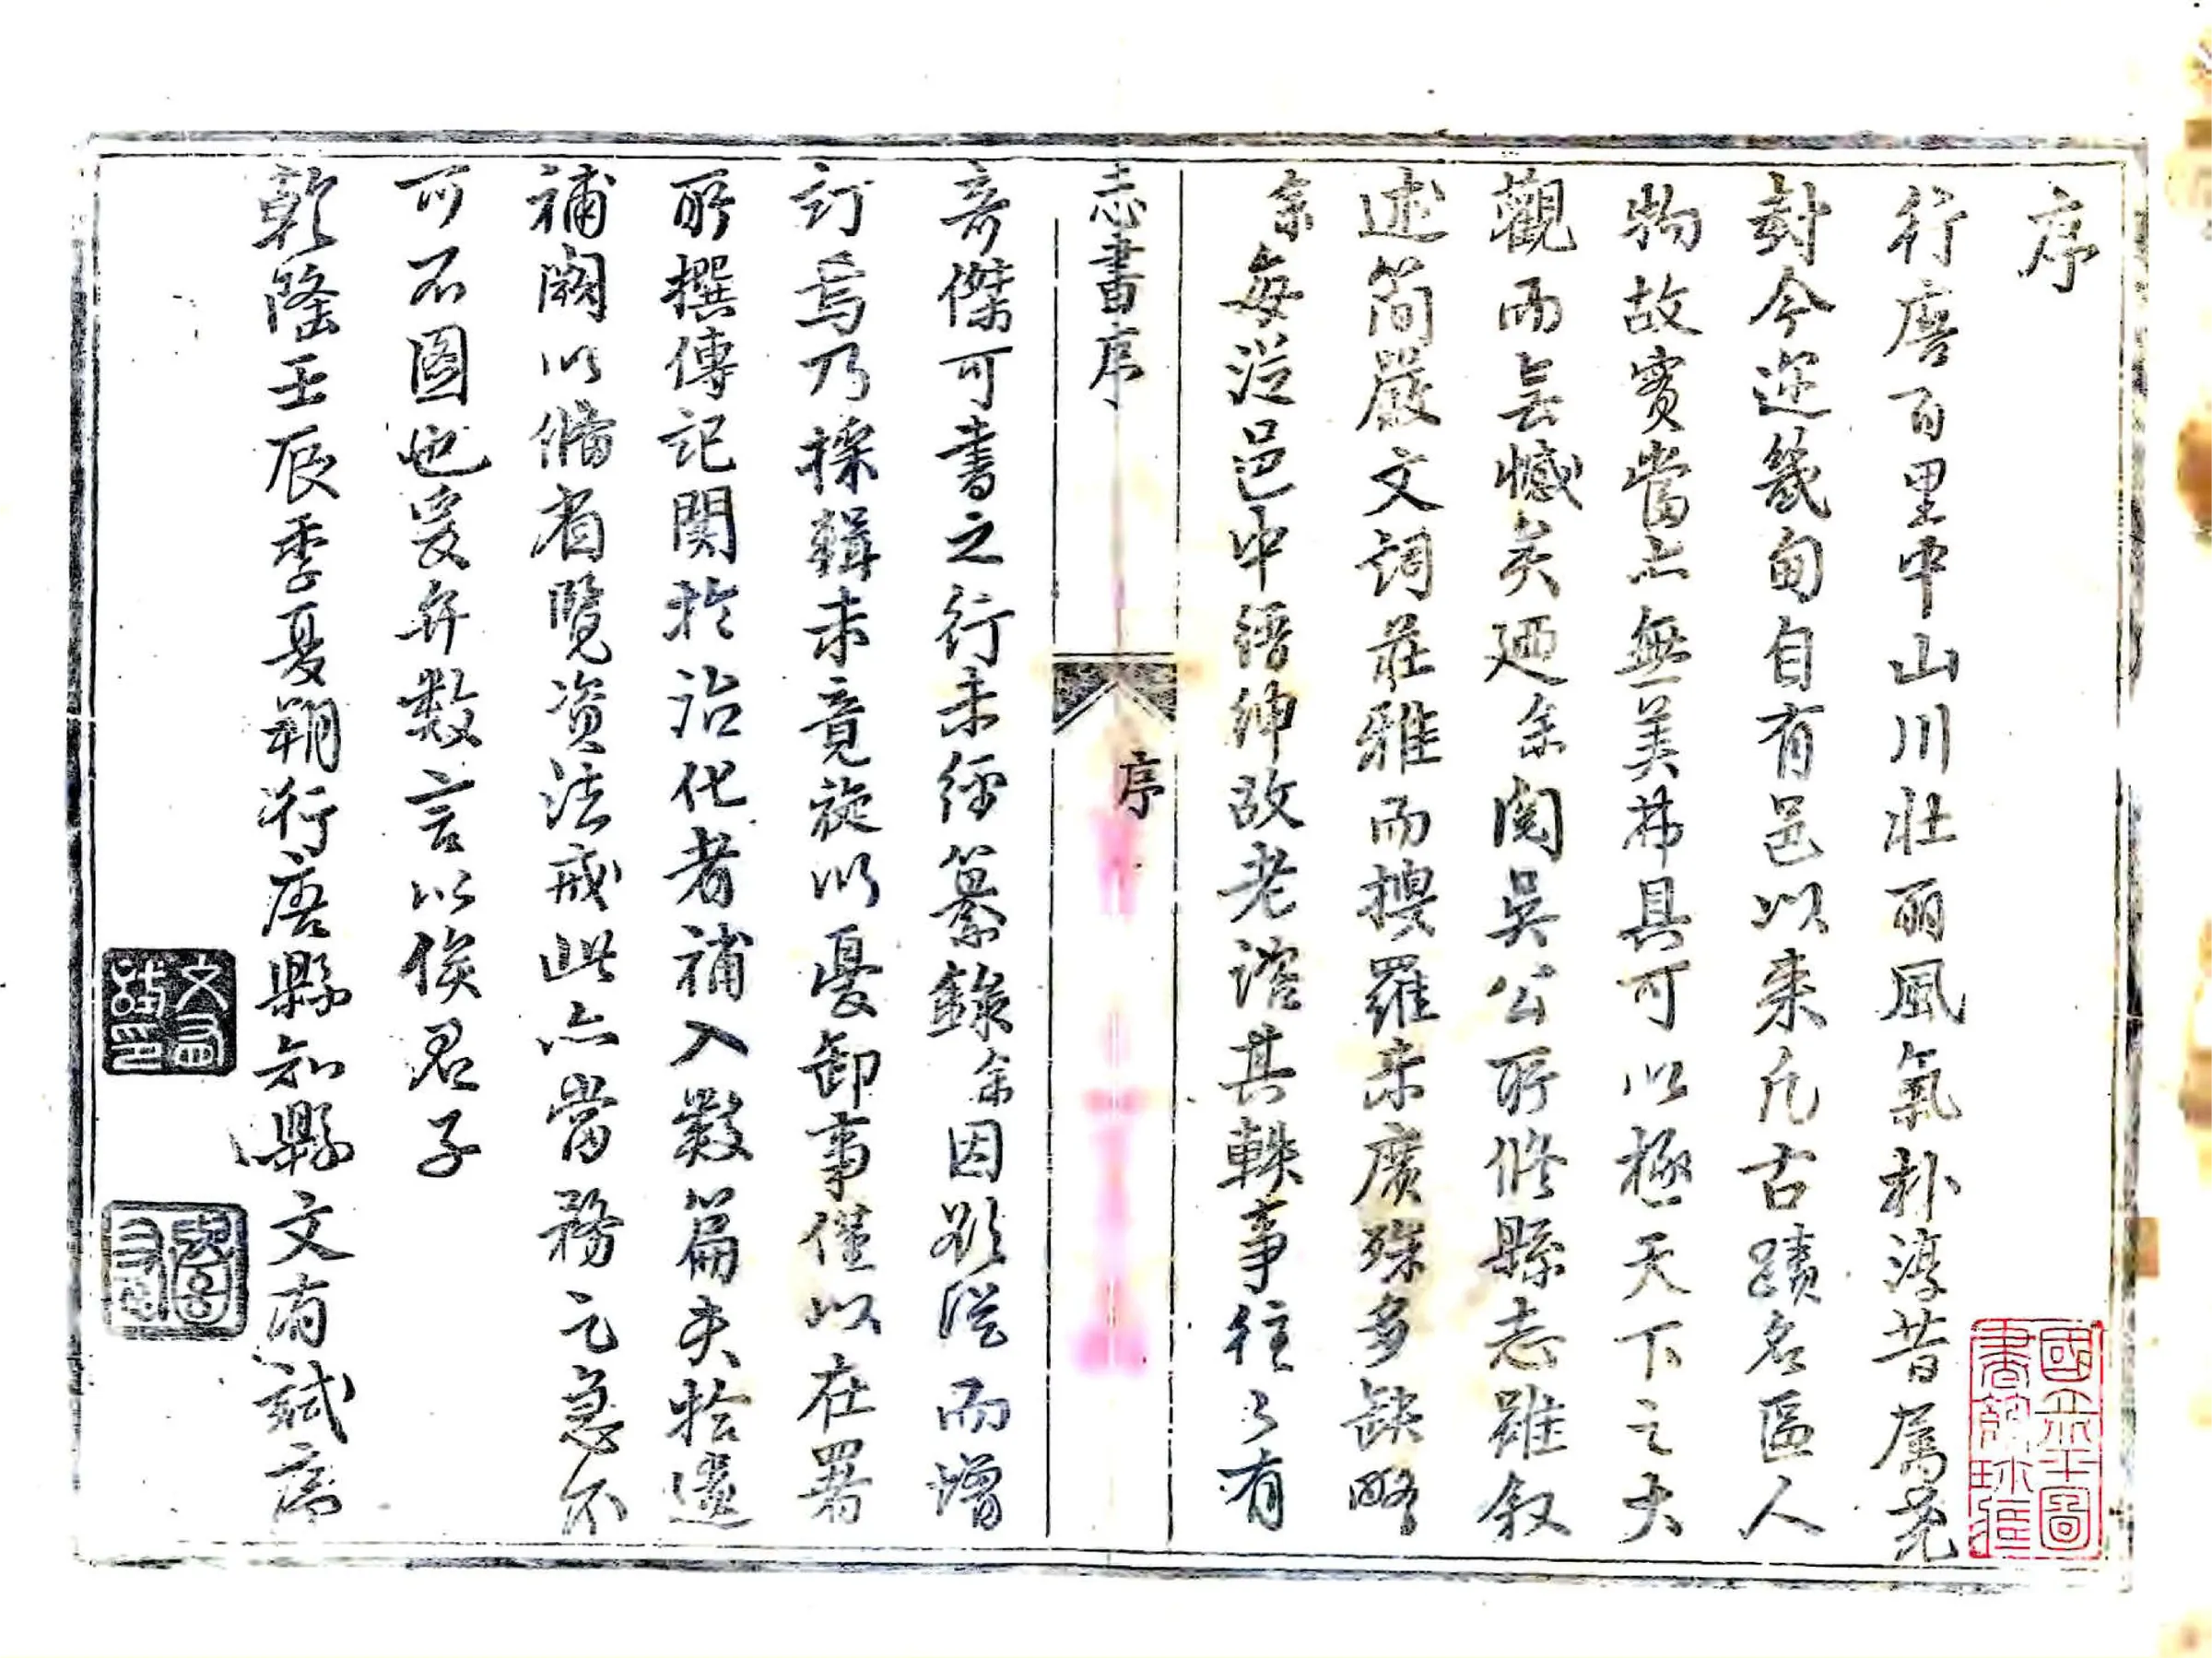 序
行唐百里中山川壯丽風氣朴淳昔屬堯
封今迩畿甸自有邑以来凡古蹟名區人
物故實當亦無美弗具可以極天下之大
觀而無憾矣廼余閱吳公所修縣志雖叙
述简嚴文詞莊雅而搜羅未廣殊多缺略
余每從邑中縉紳故老諮其軼事往々有
志書序
序
奇傑可書之行未經纂錄余因欲從而增
訂焉乃採輯未竟旋以憂卸事僅以在署
所撰傳記関於治化者補入数篇夫拾遺
補闕以俻省覽资法戒此亦當務之急不
可不图也爰弁数言以俟君子
乾隆壬辰季夏朔行唐縣知縣文有試序
國立北平圖
書館珍藏